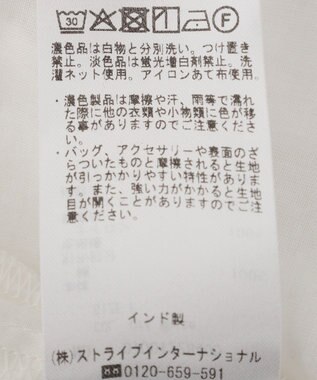 30 F
濃色品は白物と分別洗い。つけ置き
禁止。淡色品は蛍光増白剤禁止。洗
濯ネット使用。アイロンあて布使用。
・濃色製品は摩擦や汗、雨等で濡れ
た際に他の衣類や小物類に色が移
る事がありますのでご注意くださ
い。
・バッグ、アクセサリーや表面のざ
らついたものと摩擦されると生地
が引っかかりやすい特性がありま
す。また、強い力がかかると生地
目が開くことがありますのでご注
意ください。
インド製
(株)ストライプインターナショナル
0120-659-591